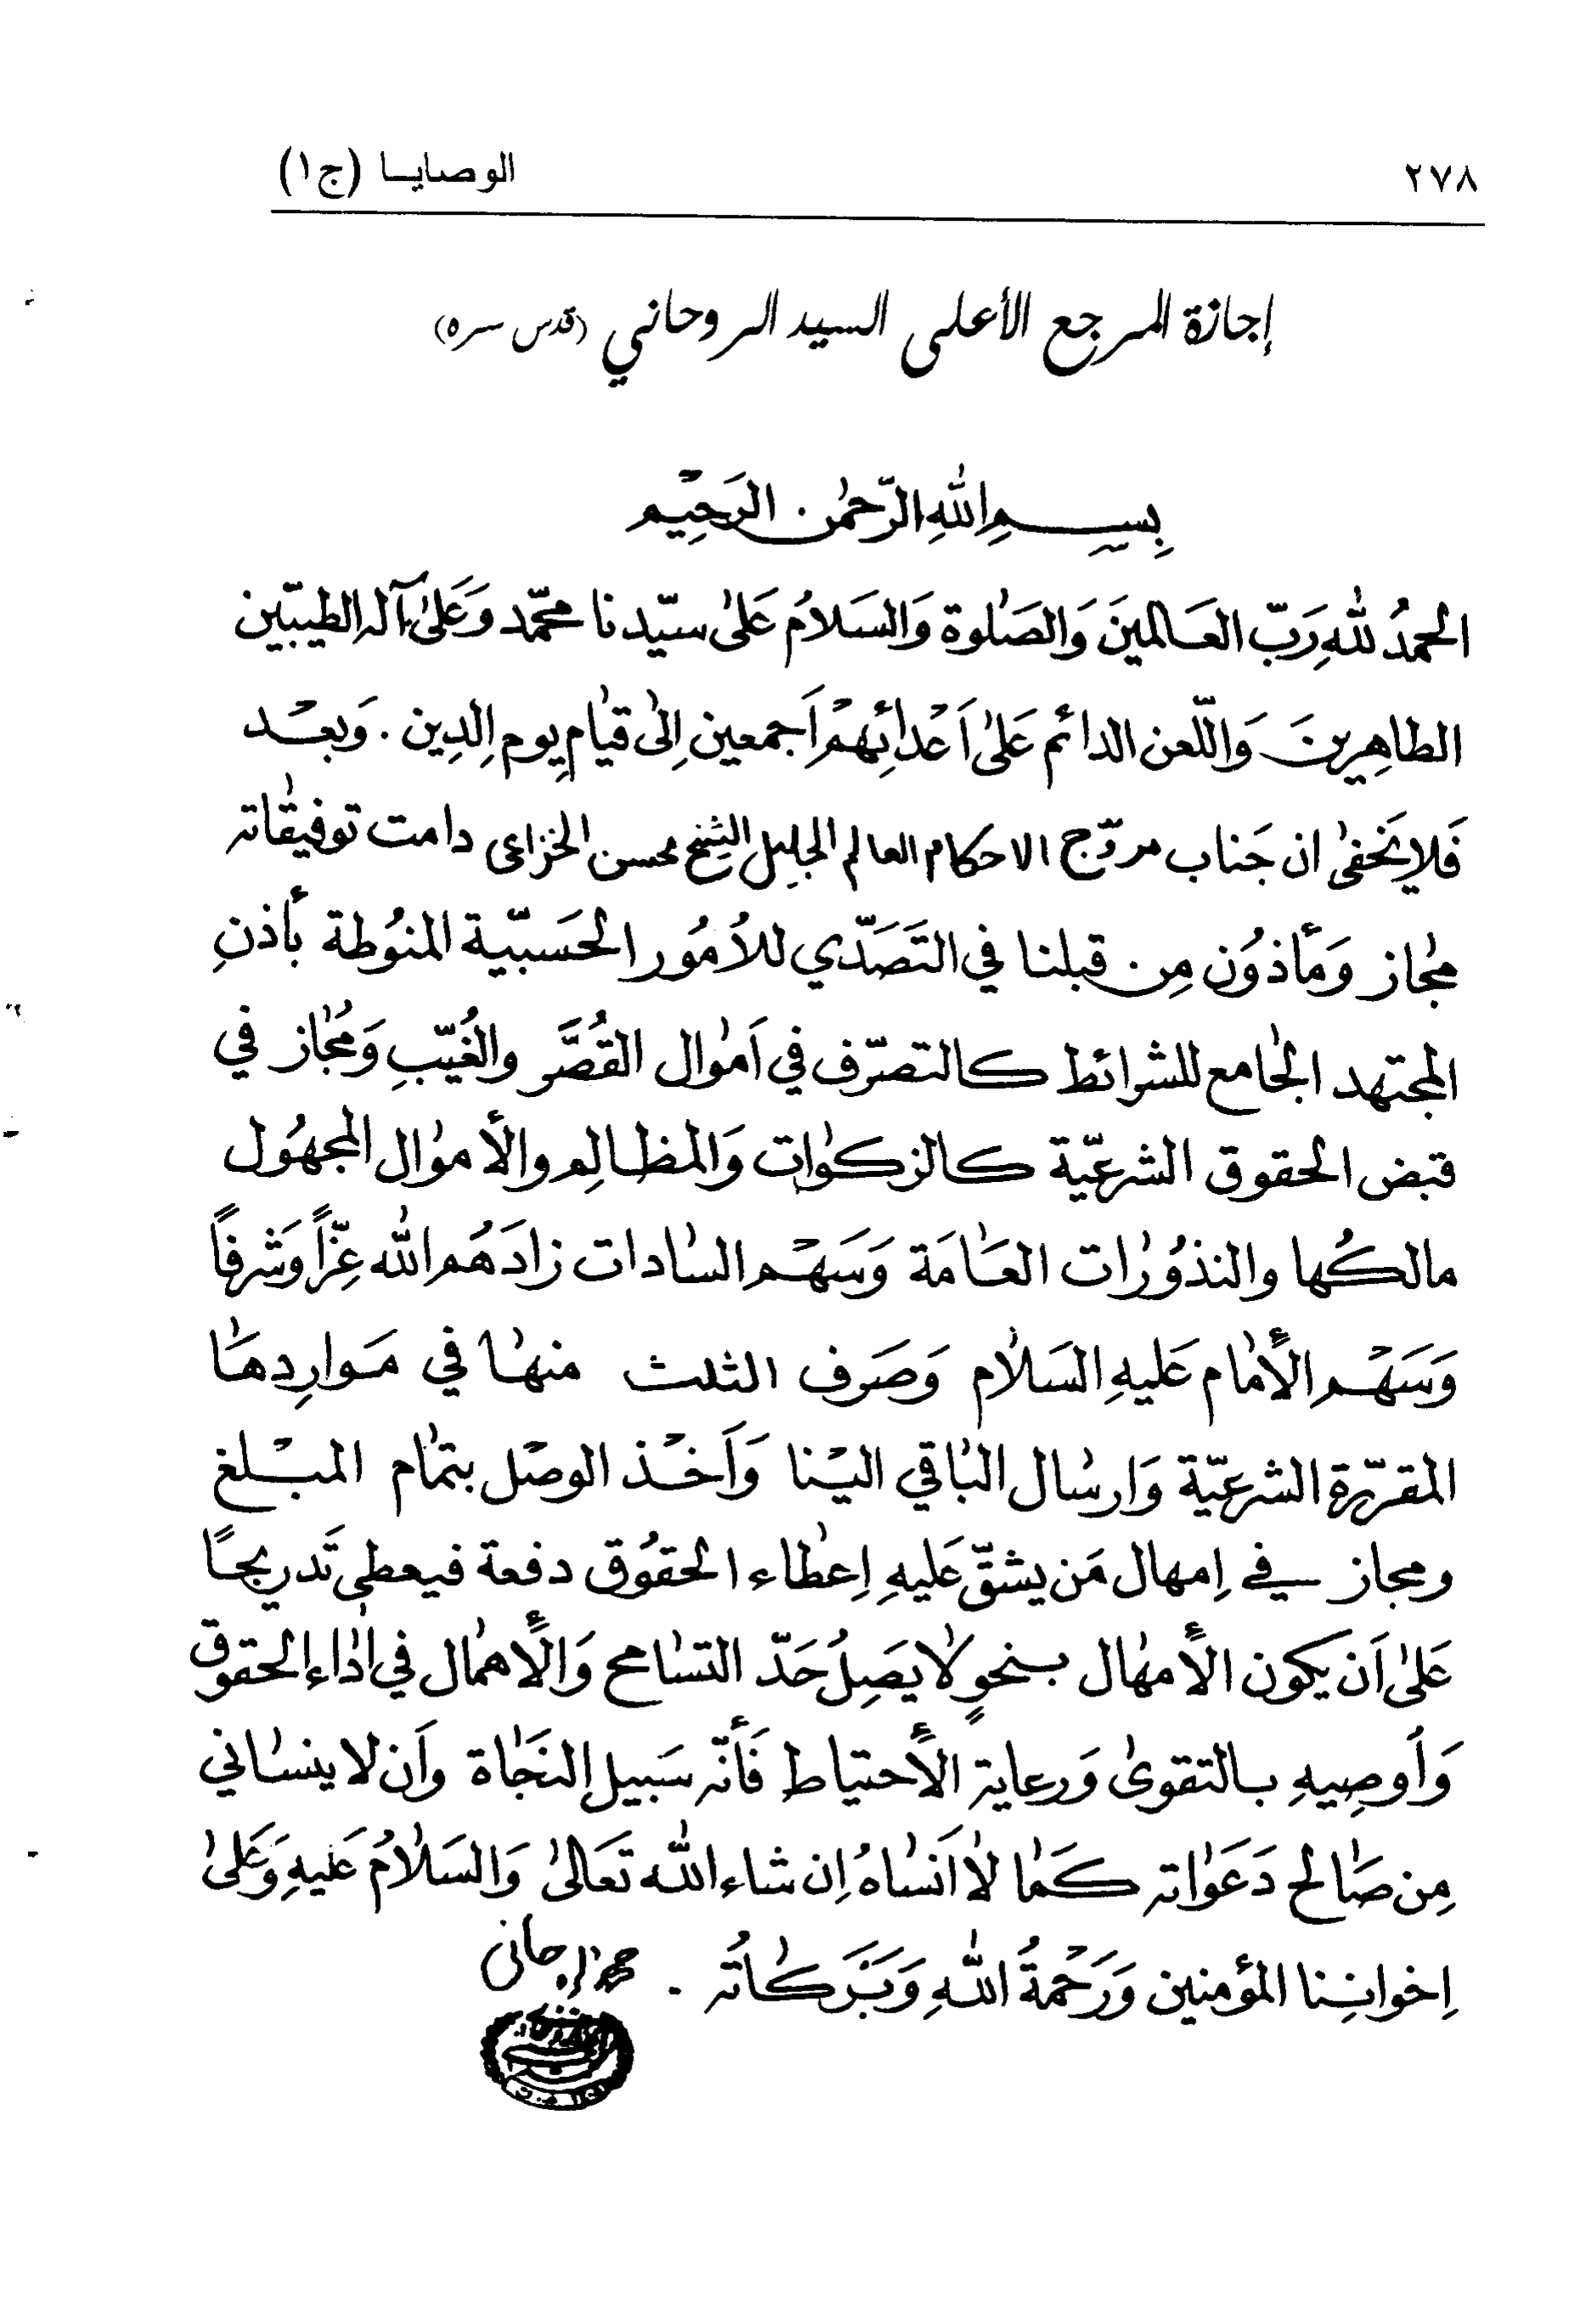 ٢٧٨ الوصايا (ج١)
إجازة المرجع الأعلى السيد الروحاني (قدس سره)
بِسمِ اللهِ الرَّحمٰن الرَحيْم
الحمدُ للهِ رَبّ العَالمينَ وَالصَلٰوة وَالسَلامُ عَلىٰ سيّدنا محمّد وَعَلىٰ آله الطيبّين
الطاهِرينَ وَاللّعن الدائم عَلىٰ اَعْدائِهمْ اَجمعين اِلىٰ قيٰامِ يوم الدِين . وَبعْد
فَلا يَخفىٰ ان جَناب مروّج الاحكام العالم الجليل الشيخ محسن الخزاعى دامت توفيقٰاته
مجٰاز وَمأذوُن مِن قبلنا في التَصَدّي للاُموُر الحَسبّية المنوُطة بأذنِ
المجتهد الجٰامع للشرائط كالتصرّف في اَموٰال القُصَّر والغُيّبِ وَمُجٰاز في
قبض الحقوق الشرعيّة كالزكوٰات وَالمظالِم والأموٰال المجهُول
مالكُها والنذوُرٰات العَامَة وَسَهْم السٰادات زادَهُم الله عِزّاً وَشرفاً
وَسَهْم الأمٰام عَليهِ السَلام وَصَرف الثلث منهٰا في مَوارِدهَا
المقرّرة الشرعيّة وَارسٰال البٰاقي اليْنا وَاَخْذ الوصْل بتمٰام المبْلغ
ومجاز في اِمهال مَن يشقّ عَليهِ اِعطٰاء الحقوُق دفعة فيعطي تَدريجاً
عَلىٰ اَن يكون الأمهٰال بنحوٍ لا يَصِلُ حَدّ التسٰامح وَالأهمٰال في ادٰاء الحقوق
وَاُوصِيهِ بالتقوىٰ وَرعاية الأحتياط فَأنّه سَبيل النَجٰاة واَن لا ينسٰاني
مِن صٰالح دَعَوٰاته كَمٰا لا اَنسٰاهُ اِن شاء الله تَعَالىٰ وَالسَلامُ عَليهِ وَعَلىٰ
اِخوانِنا المؤمنين وَرَحْمةُ اللهِ وَبَرَكٰاتُه .